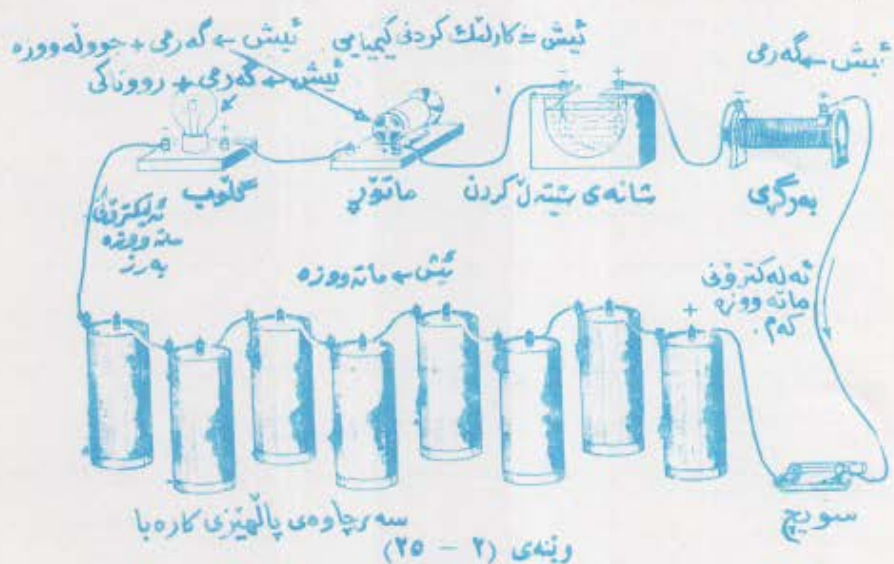 ئیش ← گەرمی
ئیش = کارلێک کردنی کیمیایی
ئیش ← گەرمی + جووڵەووزە
ئیش ← گەرمی + رووناکی
- +
- +
- +
بەرگری
شانەی شیتەڵ کردن
ماتۆڕ
گڵۆپ
ئەلیکترۆنی
ماتەووزە
بەرز
ئیش ← ماتەووزە
ئەلەکترۆنی
ماتەووزە
کەم.
+
سویچ
سەرچاوەی پاڵهێزی کارەبا
وێنەی (٢ - ٢٥)